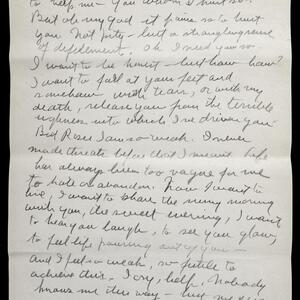 to help me - you whom I hurt so.
But oh my god it pains so to hurt
you. Not pity - but a strangling sense
of defilement. Oh I need you so.
I want to be honest - but how how?
I want to fall at your feet and
somehow with tears, or with my
death, release you from the terrible
ugliness into which I've driven you.
But I am so weak. I never
made threats before that I meant. Life
has always been too vague for me
to hold or abandon. Now I want to
live, I want to share the sunny morning
with you, the sweet evening, I want
to hear you laugh, to see you glow,
to feel life pouring out of you -
and I feel so weak, so futile to
achieve this. I cry, help. Nobody
knows me this way -